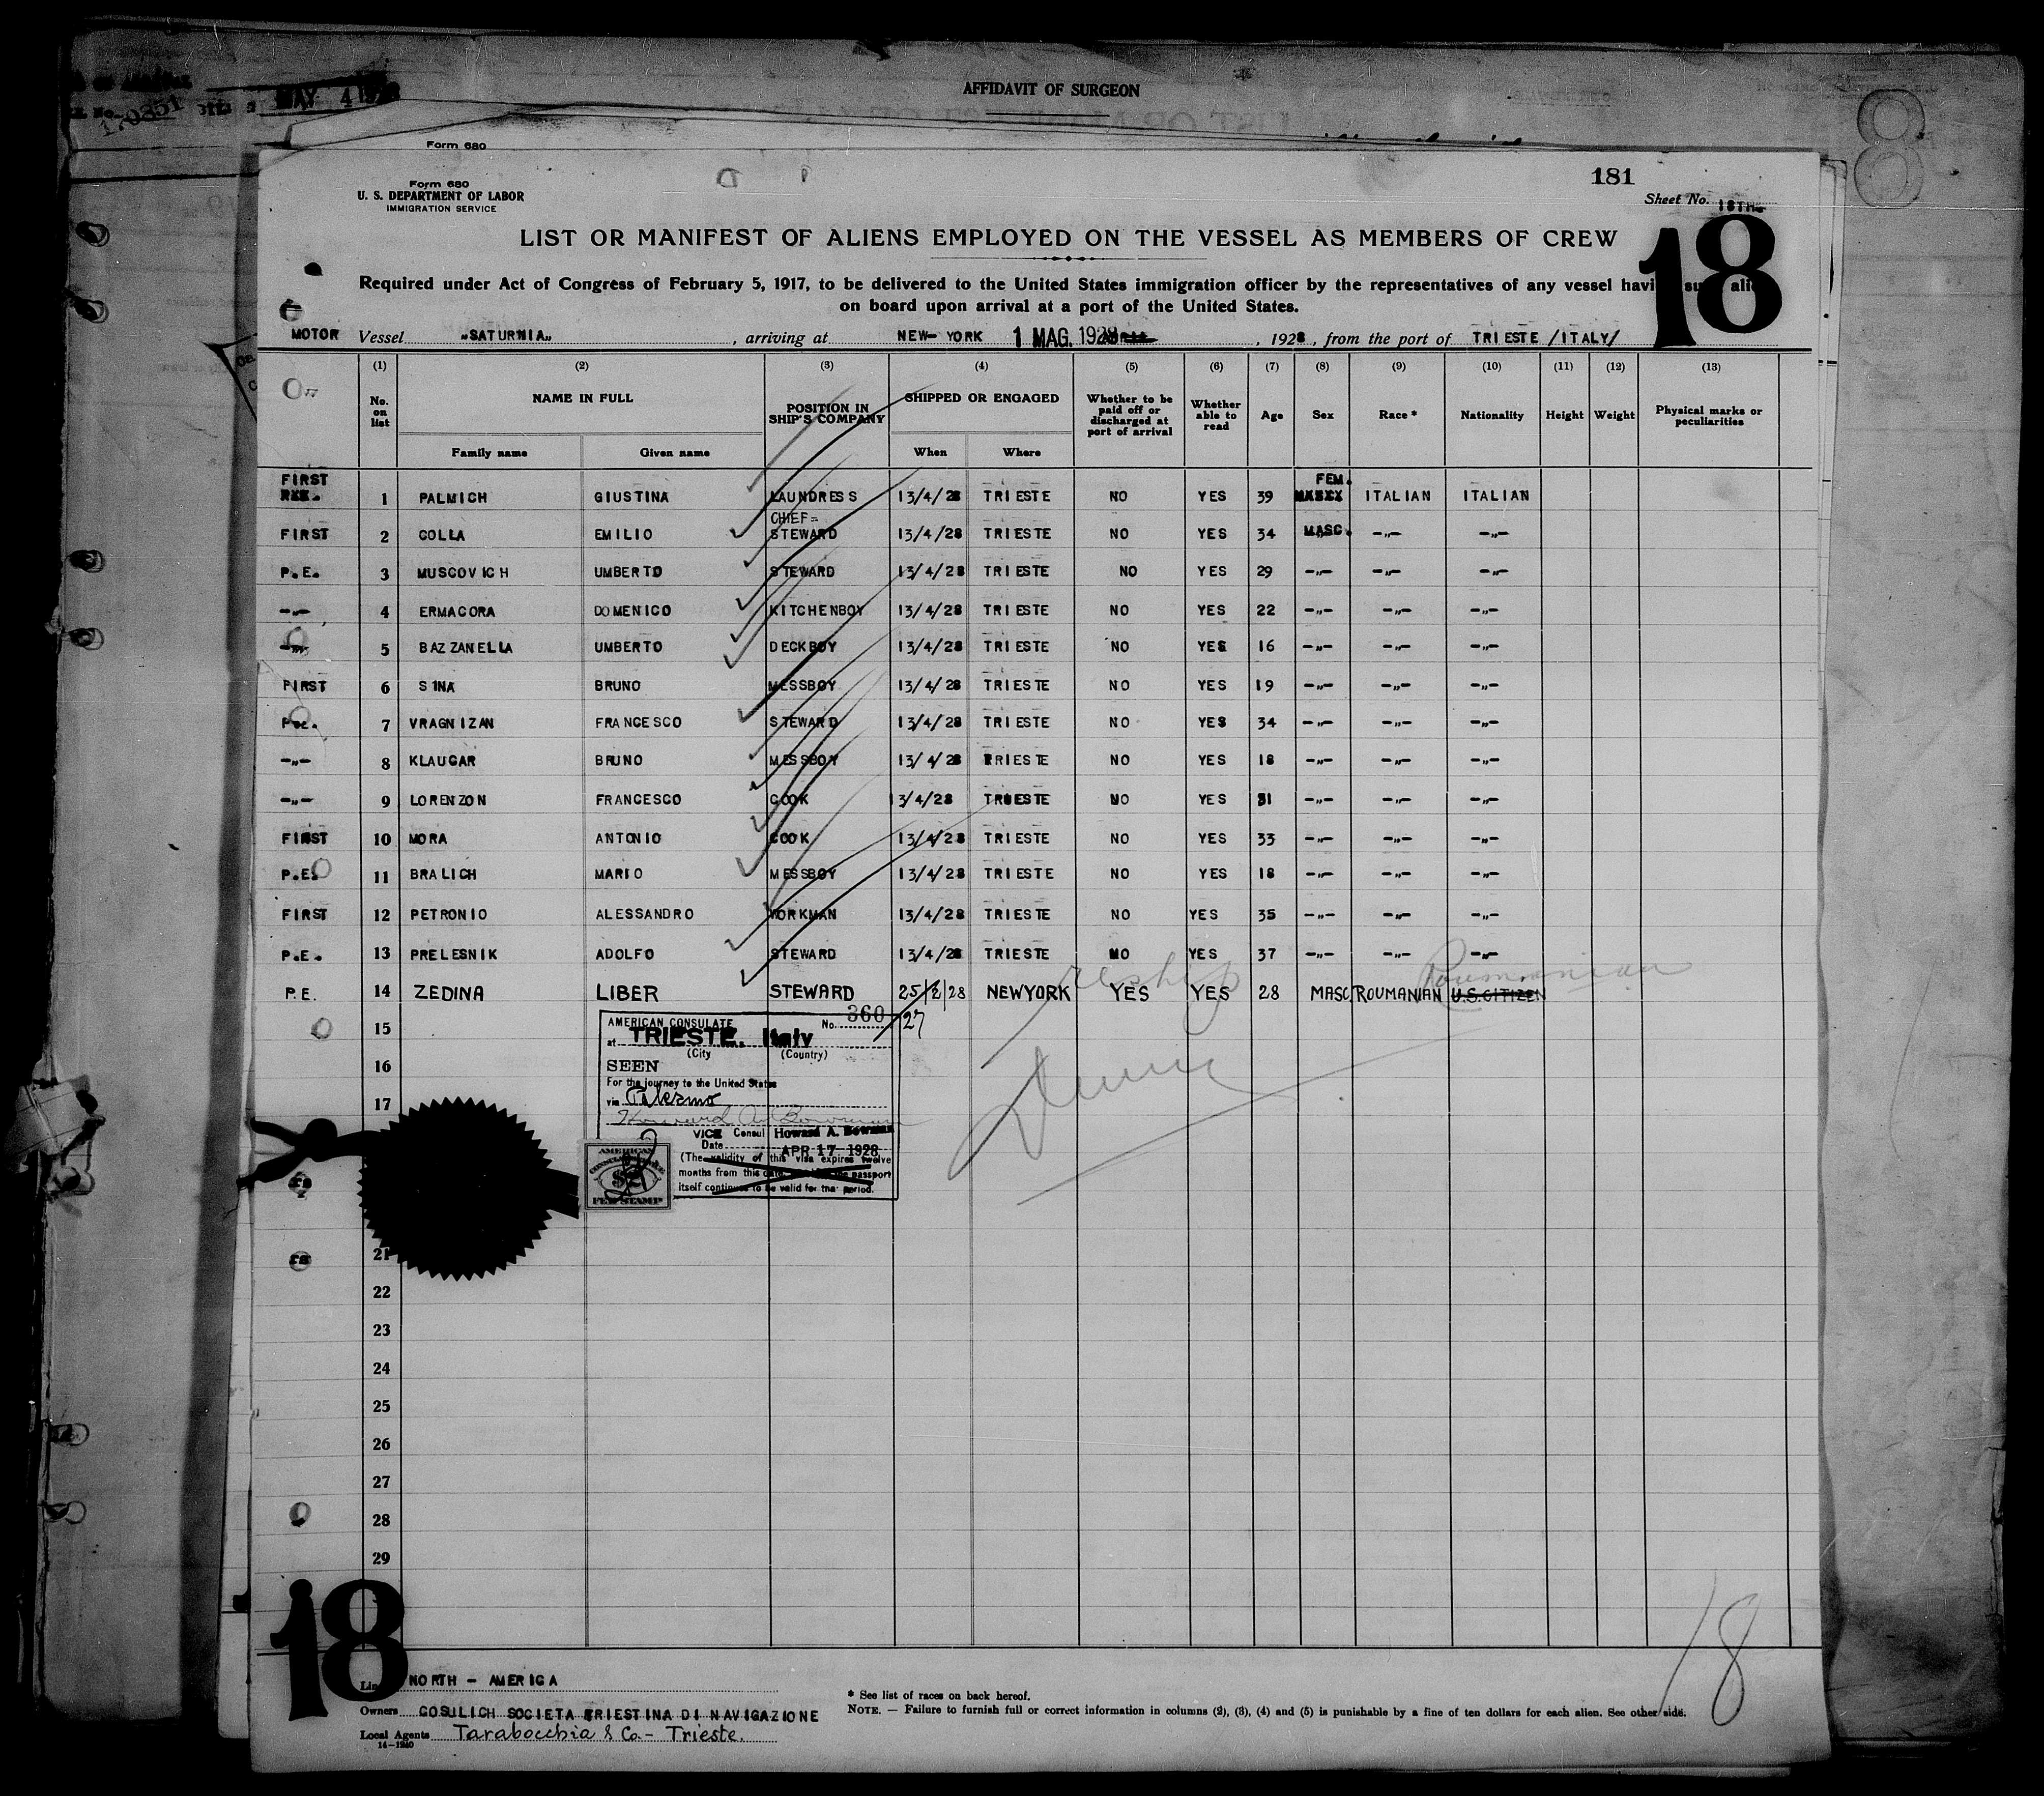 AFFIDAVIT OF SURGEON
MAY 4 1928
170851
Form 680
Form 680
U. S. DEPARTMENT OF LABOR
IMMIGRATION SERVICE
181
Sheet No. 18TH.
18
LIST OR MANIFEST OF ALIENS EMPLOYED ON THE VESSEL AS MEMBERS OF CREW
Required under Act of Congress of February 5, 1917, to be delivered to the United States immigration officer by the representatives of any vessel
on board upon arrival at a port of the United States.
MOTOR Vessel „SATURNIA„ , arriving at NEW-YORK 1 MAG. 1928 , 1928 , from the port of TRIESTE /ITALY/
(1) (2) (3) (4) (5) (6) (7) (8) (9) (10) (11) (12) (13)
No. on list NAME IN FULL POSITION IN SHIP'S COMPANY SHIPPED OR ENGAGED Whether to be paid off or discharged at port of arrival Whether able to read Age Sex Race * Nationality Height Weight Physical marks or peculiarities
Family name Given name When Where
FIRST 1 PALMICH GIUSTINA LAUNDRESS 13/4/28 TRIESTE NO YES 39 FEM. ITALIAN ITALIAN
FIRST 2 COLLA EMILIO CHIEF= STEWARD 13/4/28 TRIESTE NO YES 34 MASC. -„- -„-
P.E. 3 MUSCOVICH UMBERTO STEWARD 13/4/28 TRIESTE NO YES 29 -„- -„- -„-
-„- 4 ERMACORA DOMENICO KITCHENBOY 13/4/28 TRIESTE NO YES 22 -„- -„- -„-
-„- 5 BAZZANELLA UMBERTO DECKBOY 13/4/28 TRIESTE NO YES 16 -„- -„- -„-
FIRST 6 SINA BRUNO MESSBOY 13/4/28 TRIESTE NO YES 19 -„- -„- -„-
P.E. 7 VRAGNIZAN FRANCESCO STEWARD 13/4/28 TRIESTE NO YES 34 -„- -„- -„-
-„- 8 KLAUCAR BRUNO MESSBOY 13/4/28 TRIESTE NO YES 18 -„- -„- -„-
-„- 9 LORENZON FRANCESCO COOK 13/4/28 TRIESTE NO YES 31 -„- -„- -„-
FIRST 10 MORA ANTONIO COOK 13/4/28 TRIESTE NO YES 33 -„- -„- -„-
P.E. 11 BRALICH MARIO MESSBOY 13/4/28 TRIESTE NO YES 18 -„- -„- -„-
FIRST 12 PETRONIO ALESSANDRO WORKMAN 13/4/28 TRIESTE NO YES 35 -„- -„- -„-
P.E. 13 PRELESNIK ADOLFO STEWARD 13/4/28 TRIESTE NO YES 37 -„- -„- -„-
reship Roumanian
P.E. 14 ZEDINA LIBER STEWARD 25/2/28 NEWYORK YES YES 28 MASC ROUMANIAN U.S. CITIZEN
15
16
17
27
AMERICAN CONSULATE No. 360
at TRIESTE, Italy
(City (Country)
SEEN
For the journey to the United States
via Palermo
Howard A. Bowman
VICE Consul Howard A. Bowman
Date APR 17 1928
(The validity of this visa expires twelve
months from this date, the passport
itself continues to be valid for that period.
AMERICAN
FEE STAMP
21
22
23
24
25
26
27
28
29
18
18
Line NORTH - AMERICA
Owners COSULICH SOCIETA TRIESTINA DI NAVIGAZIONE
Local Agents Tarabocchia & Co. - Trieste.
14-1240
* See list of races on back hereof.
NOTE. — Failure to furnish full or correct information in columns (2), (3), (4) and (5) is punishable by a fine of ten dollars for each alien. See other side.